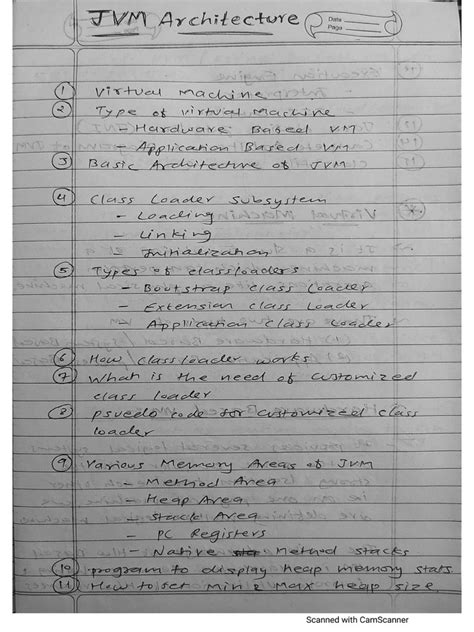 JVM Architecture
Date
Page
① Virtual Machine
② Type of virtual Machine
- Hardware Based VM
- Application Based VM
③ Basic Architecture of JVM
④ Class Loader Subsystem
- Loading
- Linking
- Initialization
⑤ Types of classloaders
- Bootstrap class Loader
- Extension class Loader
- Application Class Loader
⑥ How classloader works
⑦ What is the need of customized
class loader
⑧ psuedo code for customized class
loader
⑨ Various Memory Areas of JVM
- Method Area
- Heap Area
- Stack Area
- PC Registers
- Native Method stacks
⑩ program to display heap memory stats
⑪ How to set Min & Max heap size.
Scanned with CamScanner